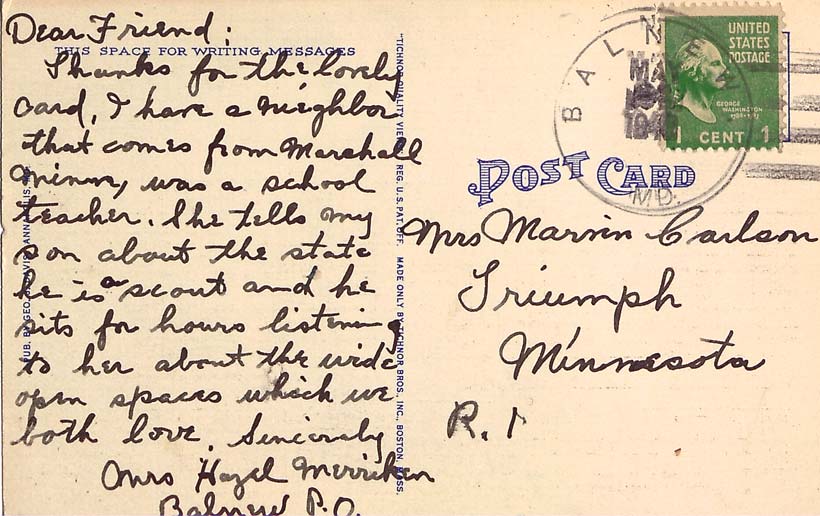 Dear Friend:
THIS SPACE FOR WRITING MESSAGES
Thanks for the lovely
card, I have a neighbor
that comes from Marshall
Minn, was a school
teacher. She tells my
son about the state
he is a scout and he
sits for hours listening
to her about the wide
open spaces which we
both love. Sincerely
Mrs Hazel Merriken
Balnew P.O.
"TICHNOR QUALITY VIEWS," REG. U.S. PAT. OFF. MADE ONLY BY TICHNOR BROS., INC., BOSTON, MASS.
BALNEW
MD.
UNITED
STATES
POSTAGE
GEORGE
WASHINGTON
1 CENT 1
POST CARD
Mrs Marvin Carlson
Triumph
Minnesota
R. 1